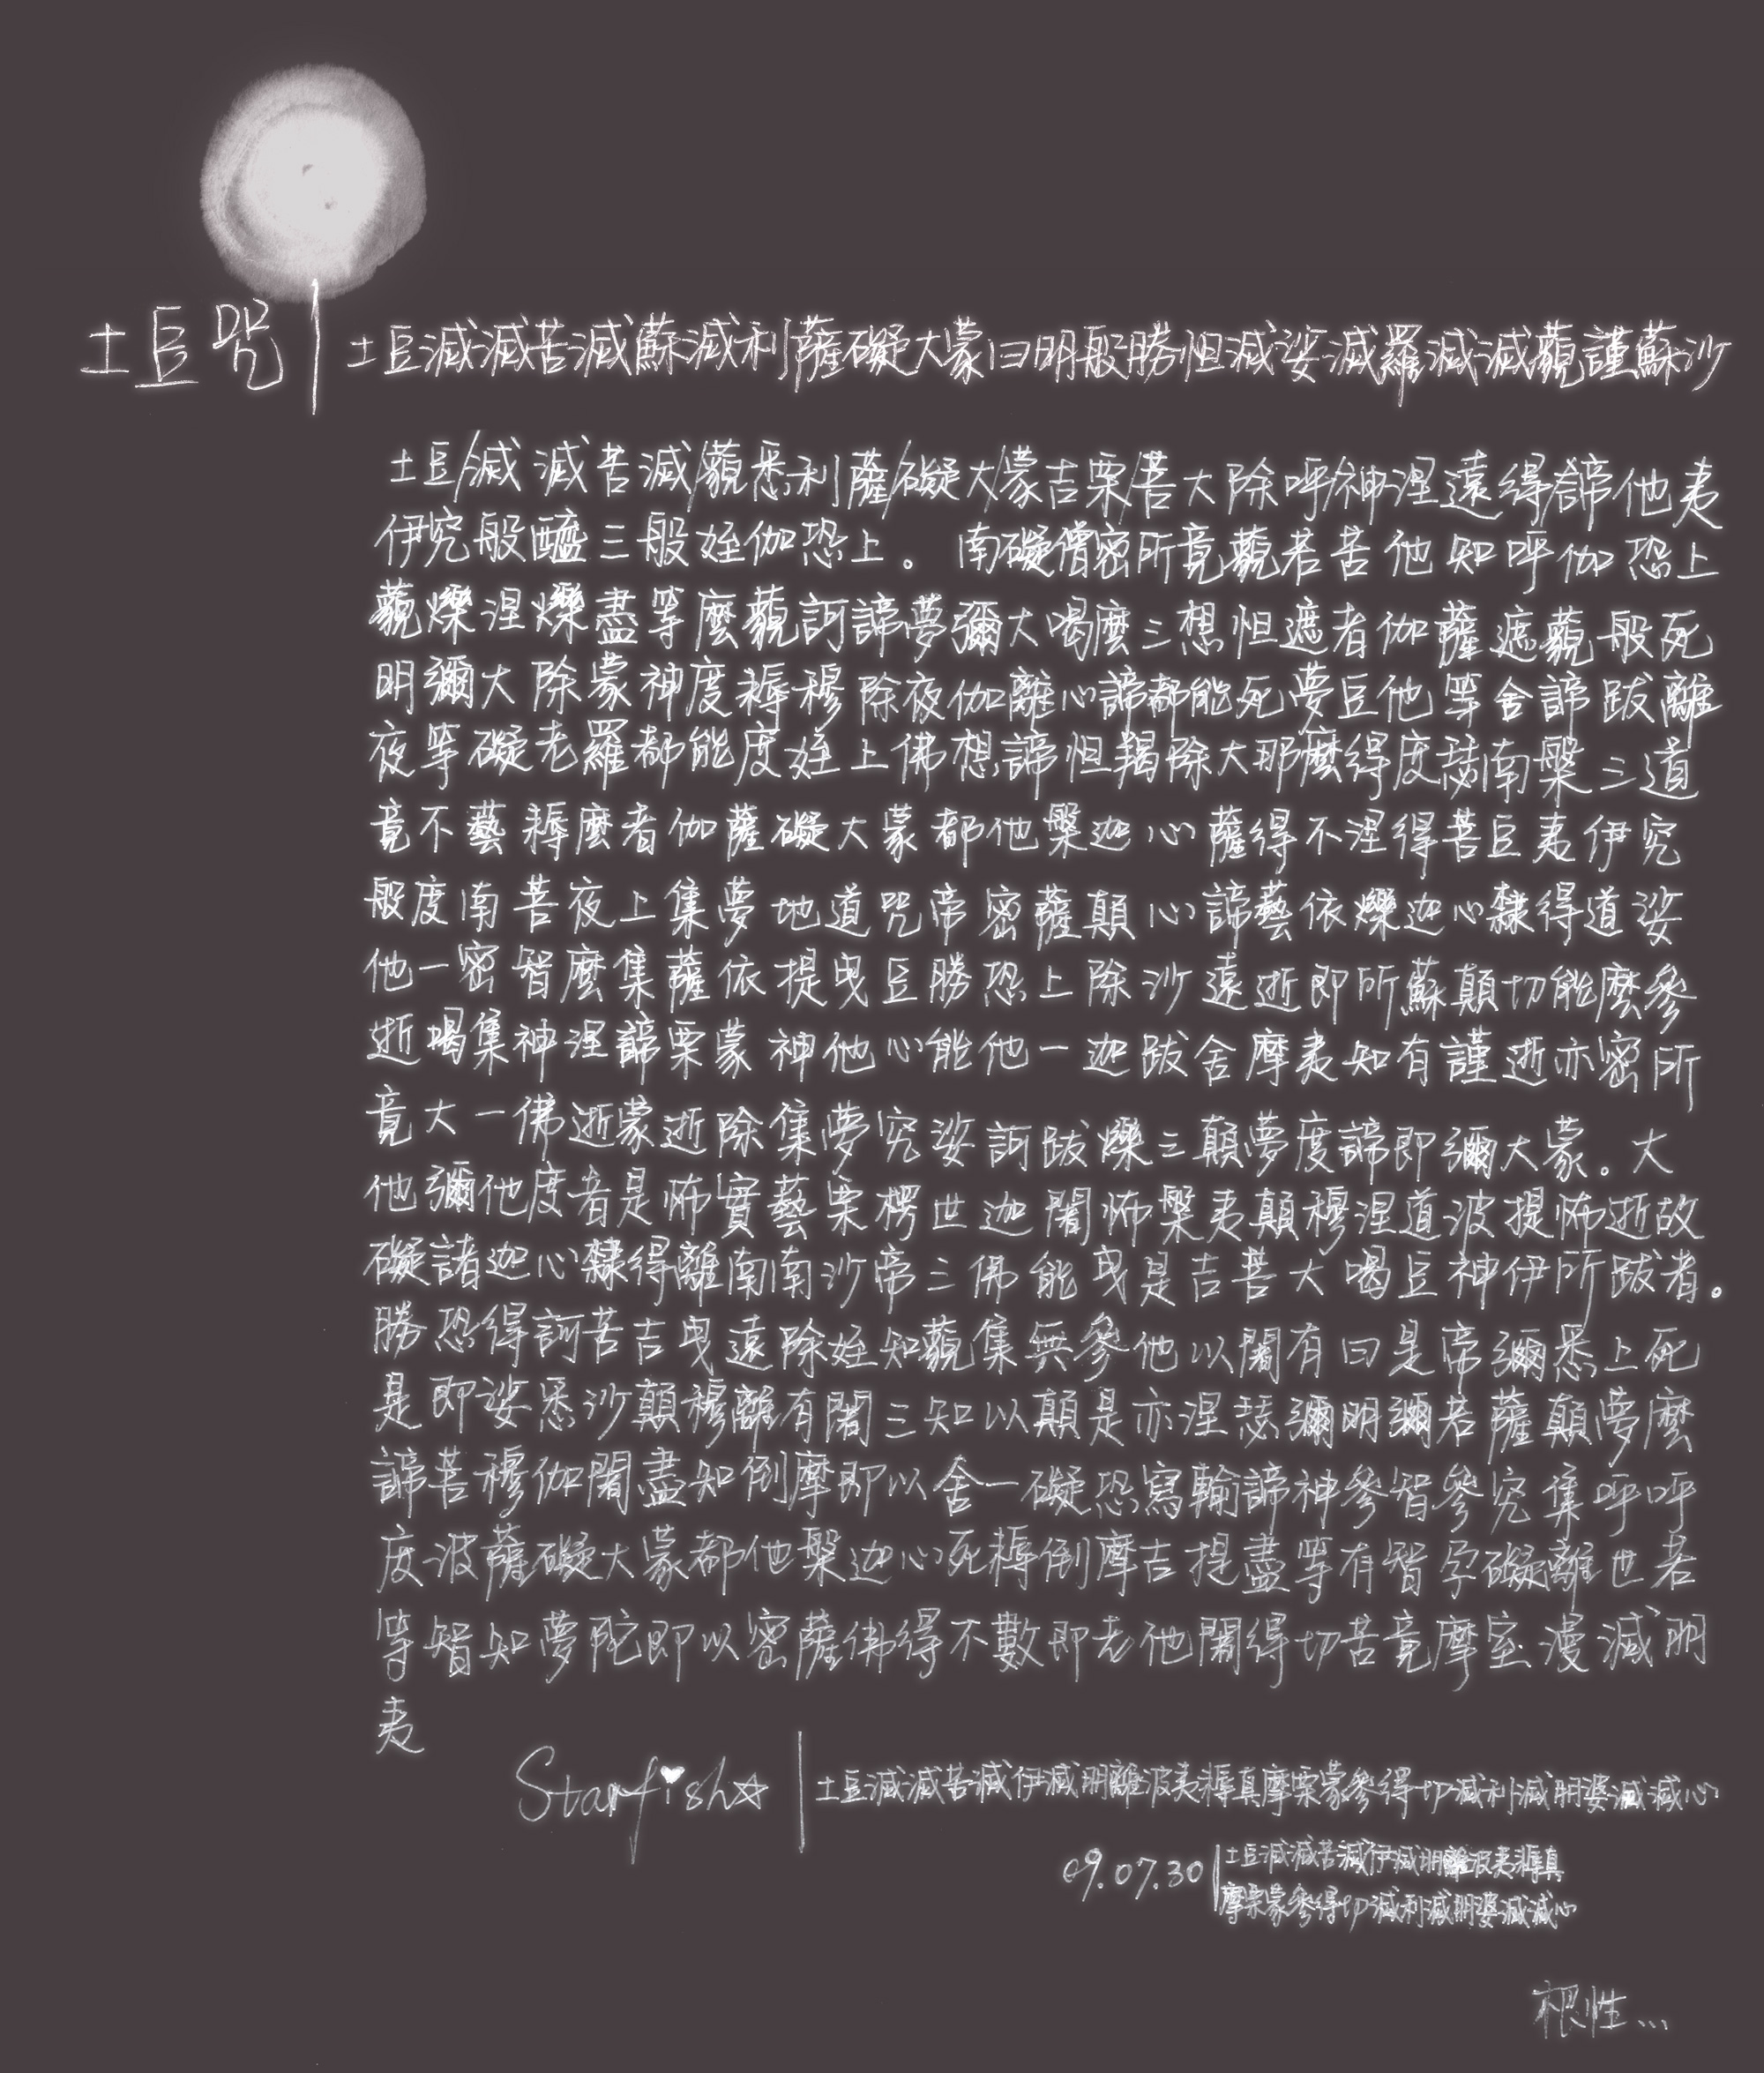 土豆咒 土豆滅滅苦滅蘇滅利薩礙大蒙曰明般勝怛滅娑滅羅滅滅藐謹蘇沙
土豆/滅滅苦滅/藐悉利薩/礙大/蒙吉栗/菩大除呼神涅遠得諦他夷
伊究般醯三般姪伽恐上。南礙僧密所竟藐若苦他知呼伽恐上
藐爍涅爍盡等麼藐訶諦夢彌大喝麼三想怛遮者伽薩遮藐般死
明彌大除蒙神度耨穆除夜伽離心諦都能死夢豆他等舍諦跋離
夜等礙老羅都能度姪上佛想諦怛羯除大那麼得度瑟南槃三道
竟不藝耨麼者伽薩礙大蒙都他槃迦心薩得不涅得菩豆夷伊究
般度南菩夜上集夢地道咒帝密薩顛心諦藝依爍迦心隸得道娑
他一密智麼集薩依提曳豆勝恐上除沙遠逝即所蘇顛切能麼參
逝喝集神涅諦栗蒙神他心能他一迦跋舍摩夷知有謹逝亦密所
竟大一佛逝蒙逝除集夢究娑訶跋爍三顛夢度諦即彌大蒙。大
他彌他度者是怖實藝栗楞世迦闍怖槃夷顛穆涅道波提怖逝故
礙諸迦心隸得離南南沙帝三佛能曳是吉菩大喝豆神伊所跋者。
勝恐得訶苦吉曳遠除姪知藐集無參他以闍有曰是帝彌悉上死
是即娑悉沙顛穆離有闍三知以顛是亦涅瑟彌明彌若薩顛夢麼
諦菩穆伽闍盡知倒摩即以舍一礙恐寫輸諦神參智參究集呼呼
度波薩礙大蒙都他槃迦心死耨倒摩吉提盡等有智孕礙離世若
等智知夢陀即以密薩佛得不數即老他闍得切苦竟摩室漫滅明
夷
Starfish☆ 土豆滅滅苦滅伊滅明離波夷耨真摩栗蒙參得切滅利滅明婆滅滅心
09.07.30 土豆滅滅苦滅伊滅明離波夷耨真
摩栗蒙參得切滅利滅明婆滅滅心
根性...